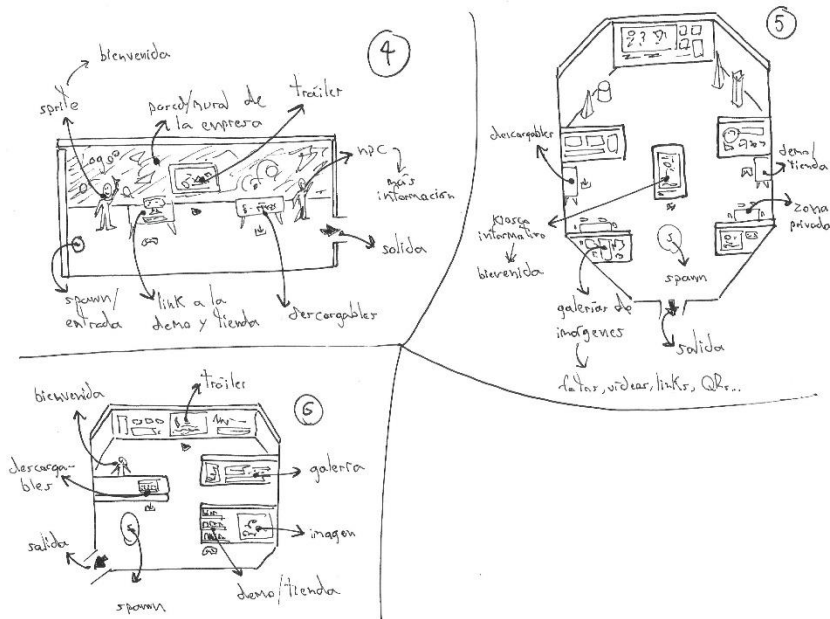 4
bienvenida
sprite
pared/mural de
la empresa
tráiler
npc
más
información
Logo
salida
spawn/
entrada
link a la
demo y tienda
descargables
5
descargables
demo/
tienda
zona
privada
kiosco
informativo
bienvenida
S
spawn
galerías de
imágenes
salida
fotos, vídeos, links, QRs...
6
tráiler
bienvenida
descarga-
bles
galería
S
imagen
salida
demo/tienda
spawn